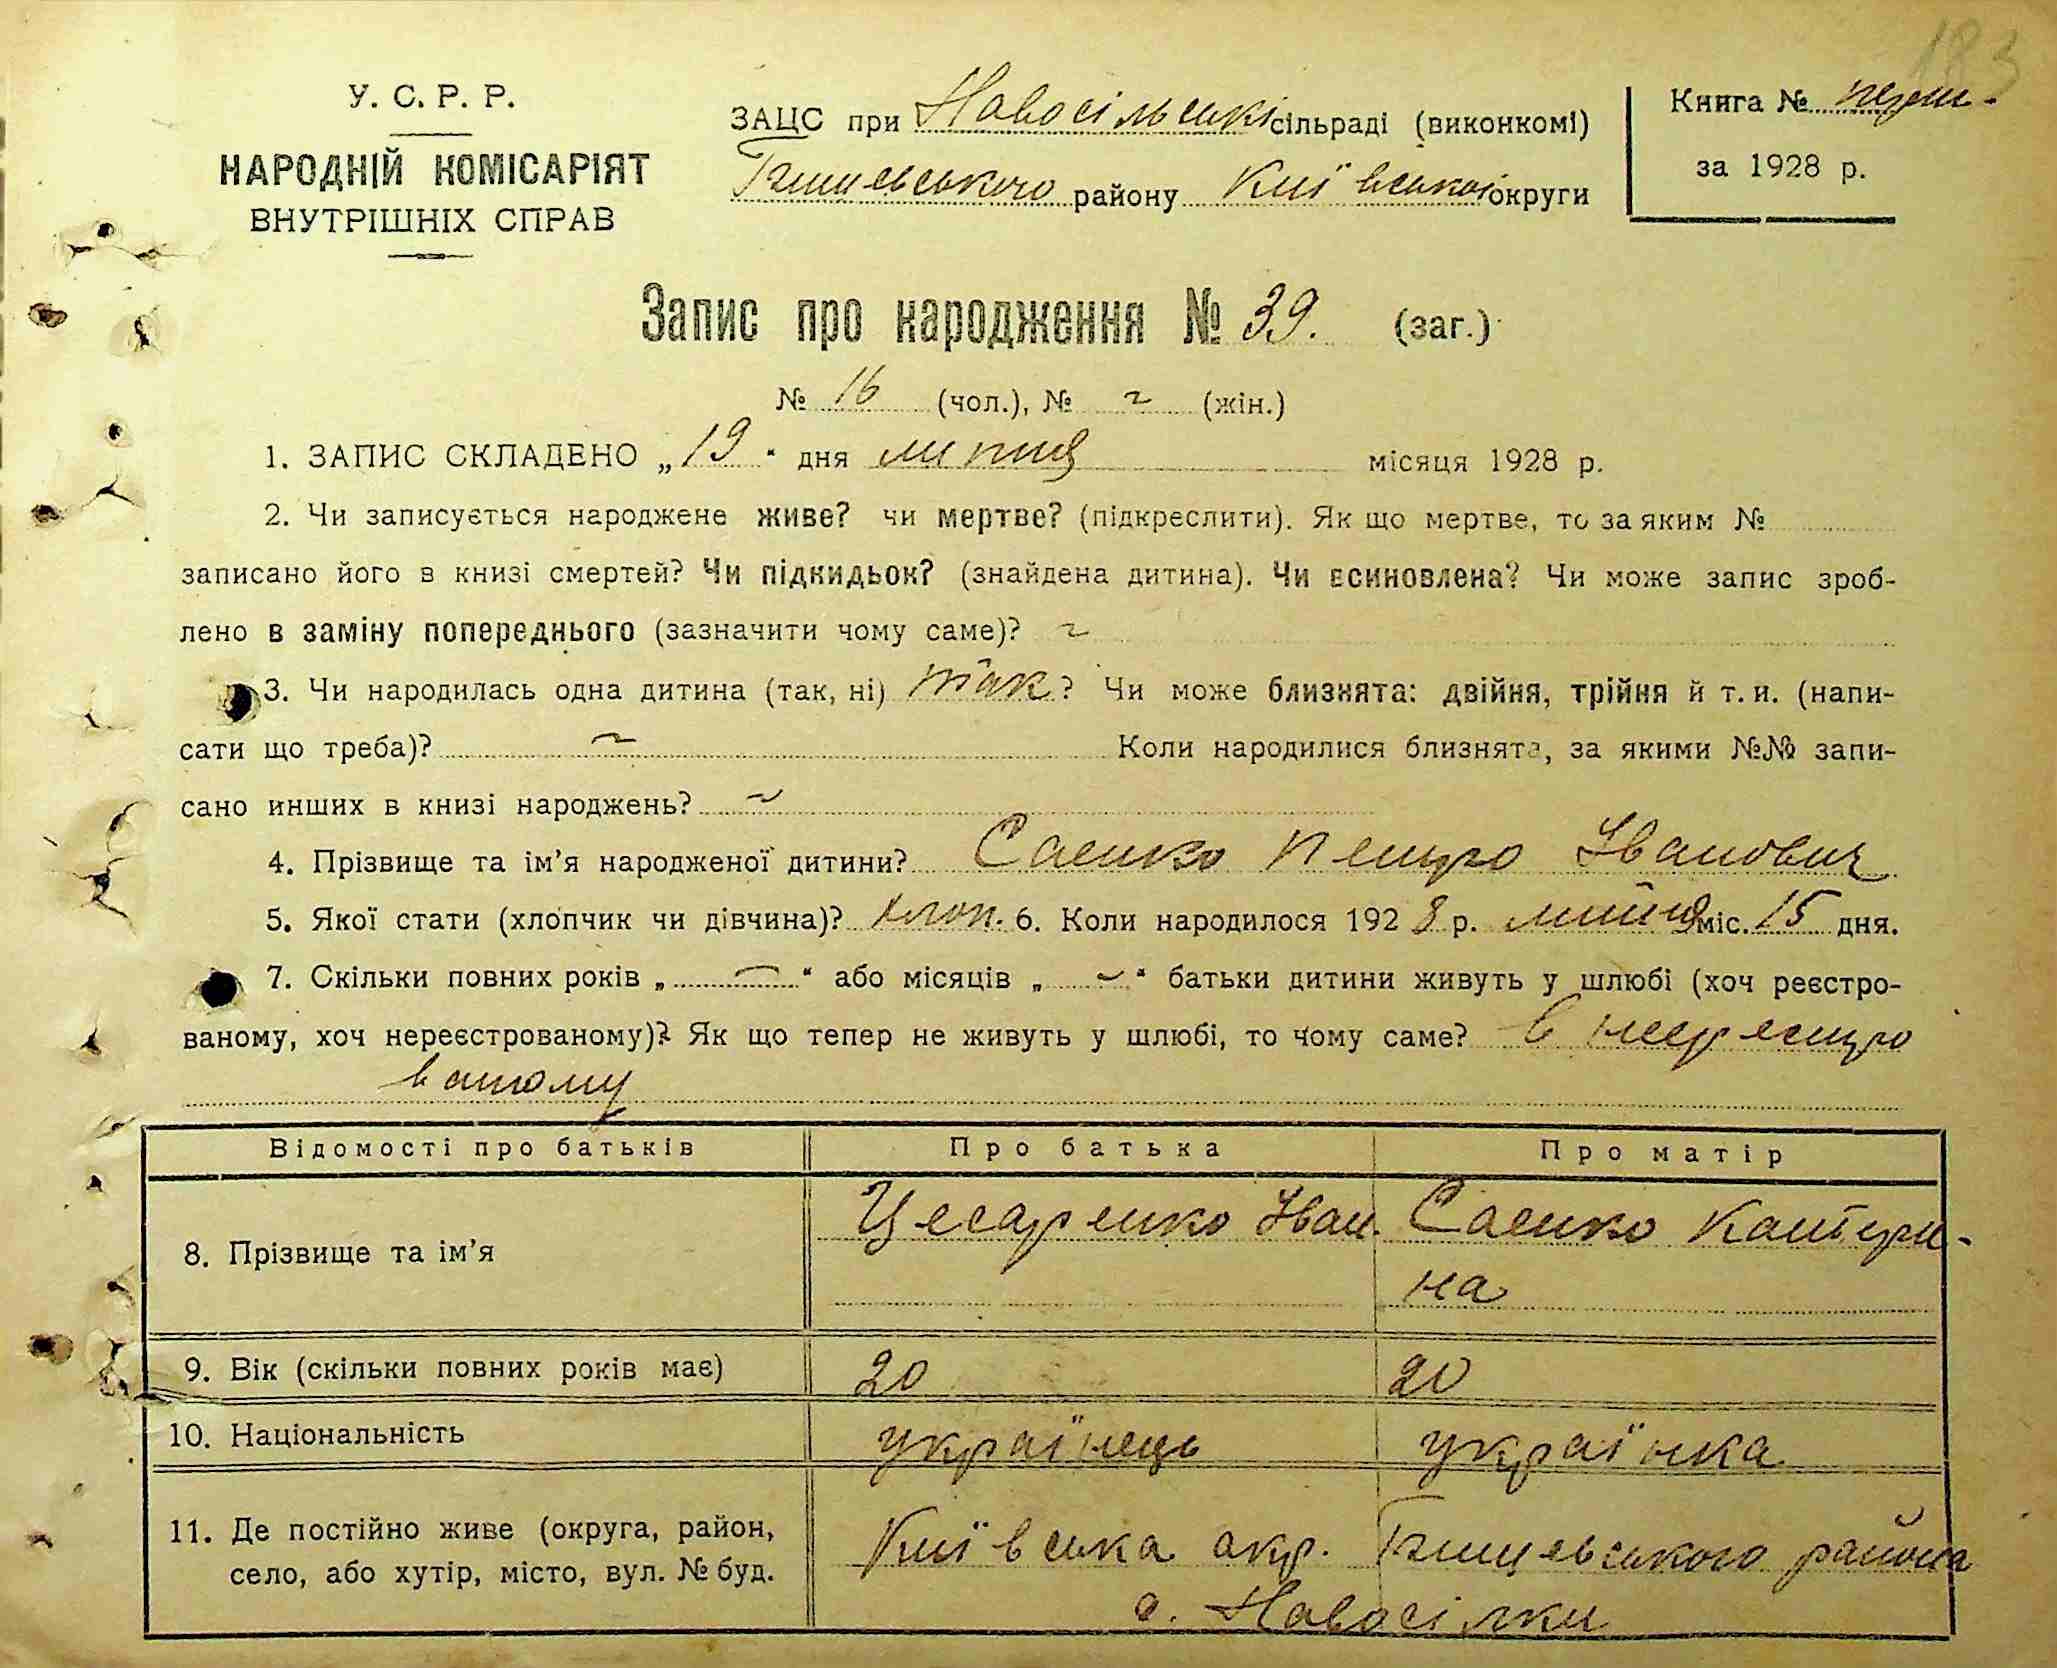 183
У. С. Р. Р.
НАРОДНІЙ КОМІСАРІЯТ
ВНУТРІШНІХ СПРАВ
ЗАЦС при Новосільські сільраді (виконкомі)
району Київської округи
Книга № перш-
за 1928 р.
Запис про народження № 39. (заг.)
№ 16 (чол.), № ~ (жін.)
1. ЗАПИС СКЛАДЕНО „19“ дня липня місяця 1928 р.
2. Чи записується народжене живе? чи мертве? (підкреслити). Як що мертве, то за яким №
записано його в книзі смертей? Чи підкидьок? (знайдена дитина). Чи всиновлена? Чи може запис зроб-
лено в заміну попереднього (зазначити чому саме)? ~
3. Чи народилась одна дитина (так, ні) так? Чи може близнята: двійня, трійня й т. и. (напи-
сати що треба)? ~ Коли народилися близнята, за якими №№ запи-
сано инших в книзі народжень? ~
4. Прізвище та ім’я народженої дитини? Саенко Петро Іванович
5. Якої стати (хлопчик чи дівчина)? хлоп. 6. Коли народилося 1928 р. липня міс. 15 дня.
7. Скільки повних років „ — “ або місяців „ ~ “ батьки дитини живуть у шлюбі (хоч реєстро-
ваному, хоч нереєстрованому)? Як що тепер не живуть у шлюбі, то чому саме? в нереєстро
ваному
Відомості про батьків Про батька Про матір
8. Прізвище та ім’я Цесаренко Іван. Саенко Катери-
на
9. Вік (скільки повних років має) 20 20
10. Національність українець українка
11. Де постійно живе (округа, район,
село, або хутір, місто, вул. № буд.
Київська окр. района
с. Новосілки